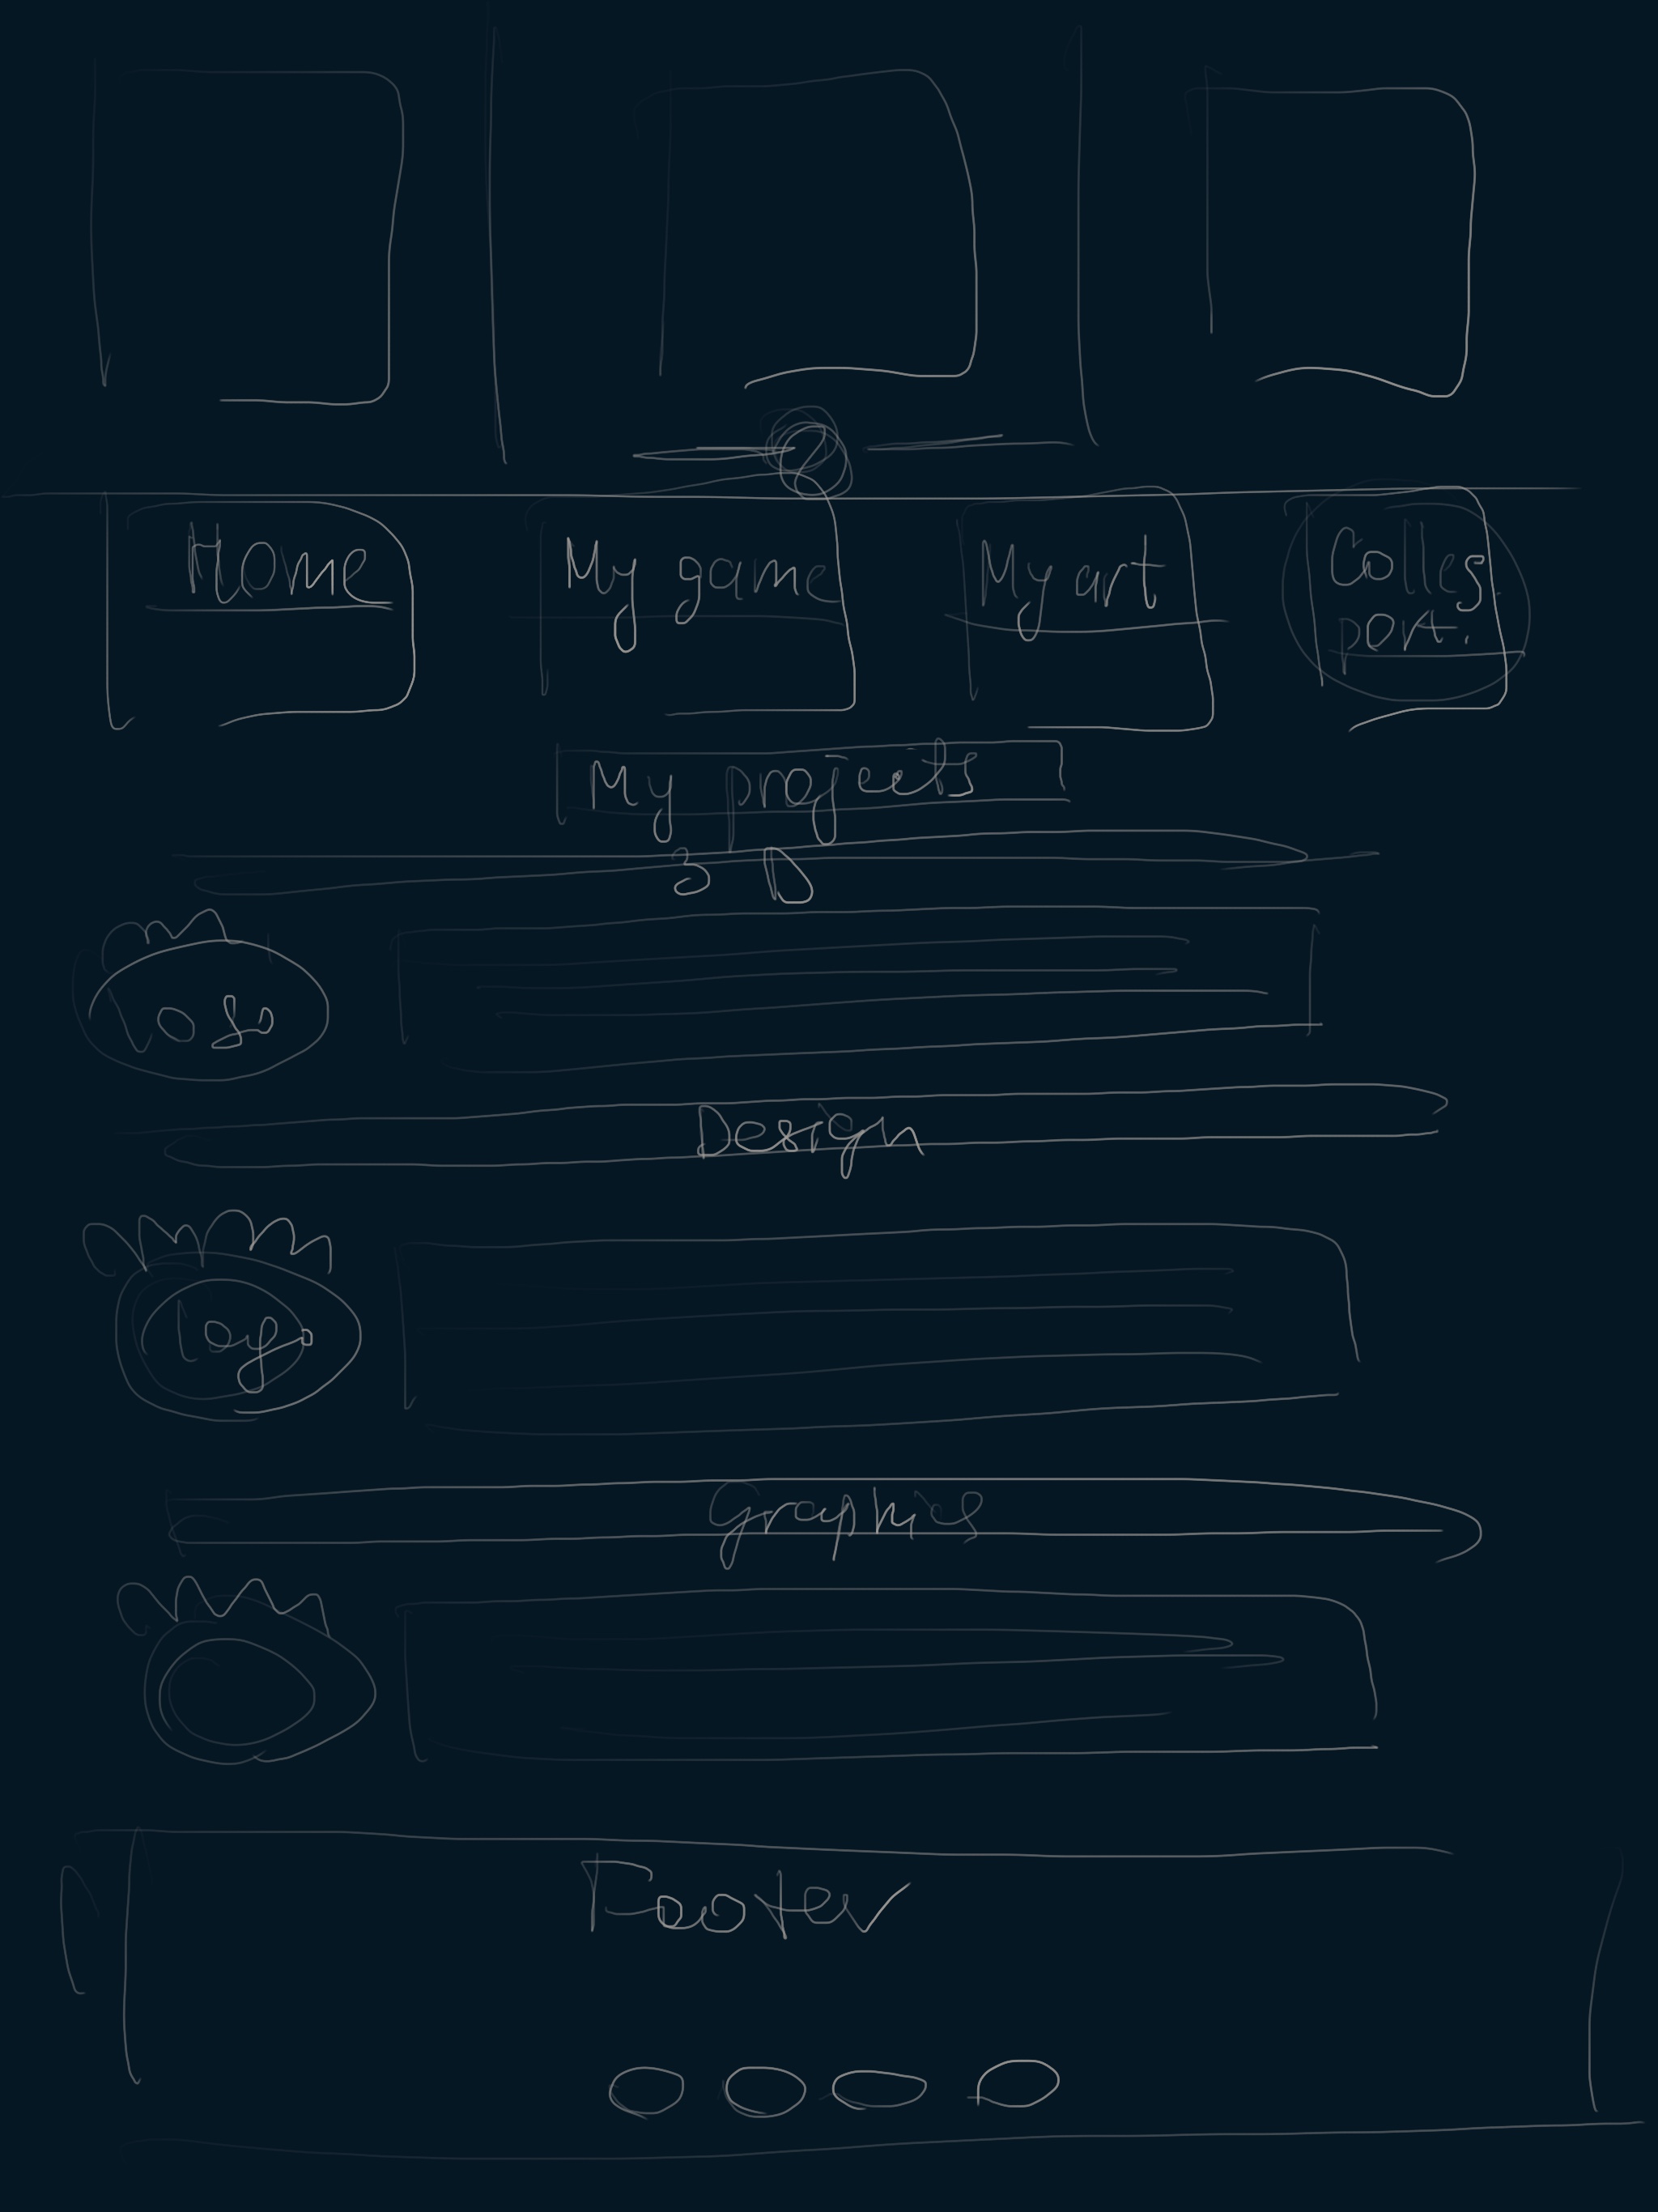 Home
My game
My art
Colles
port.
My projects
3 D
Logo
Design
logo
Graphic
Footer